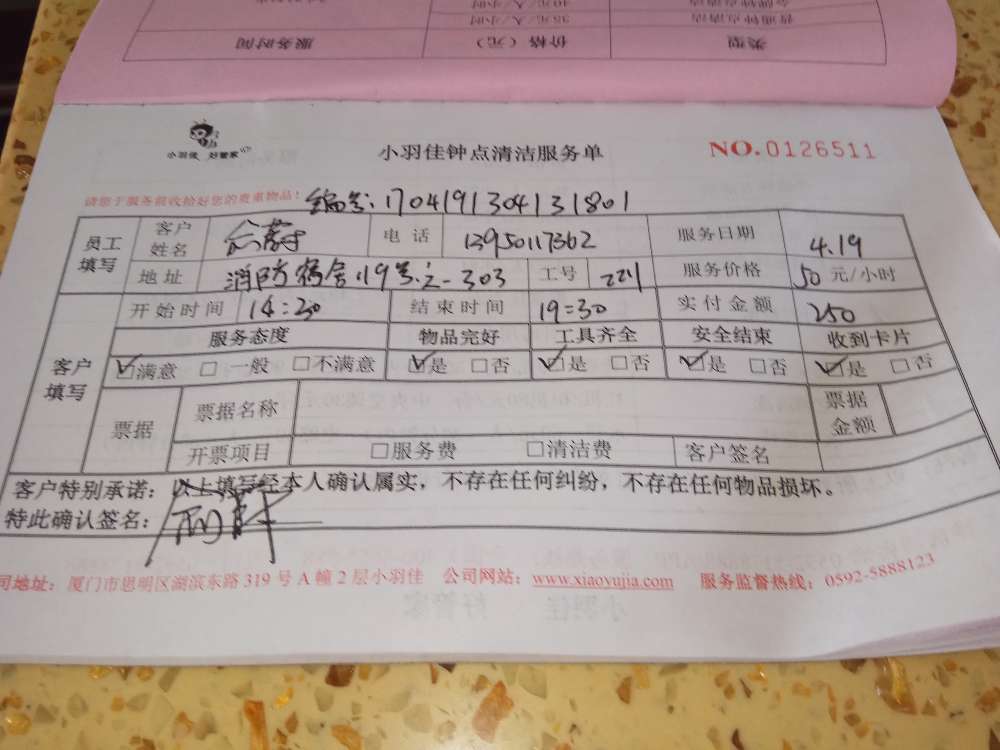 类型 价格（元） 服务时间
普通钟点清洁 35元/人/小时
金牌钟点清洁 40元/人/小时
小羽佳 好管家
小羽佳钟点清洁服务单
NO.0126511
请您于服务前收拾好您的贵重物品！
编号:1704191304131801
员工填写 客户姓名 电话 13950117362 服务日期 4.19
地址 消防宿舍19号之-303 工号 221 服务价格 50元/小时
客户填写 开始时间 14:30 结束时间 19:30 实付金额 250
服务态度 物品完好 工具齐全 安全结束 收到卡片
☑满意 □一般 □不满意 ☑是 □否 ☑是 □否 ☑是 □否 ☑是 □否
票据 票据名称 票据金额
开票项目 □服务费 □清洁费 客户签名
客户特别承诺：以上填写经本人确认属实，不存在任何纠纷，不存在任何物品损坏。
特此确认签名：
司地址：厦门市思明区湖滨东路319号A幢2层小羽佳 公司网站：www.xiaoyujia.com 服务监督热线：0592-5888123